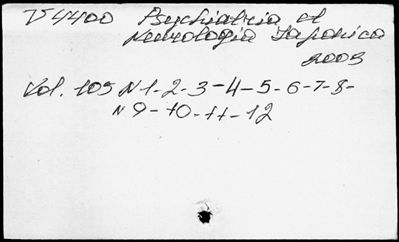 V4400 Psychiatria et
neurologia Japonica
2003
Vol. 105 N 1-2-3-4-5-6-7-8-
N 9-10-11-12